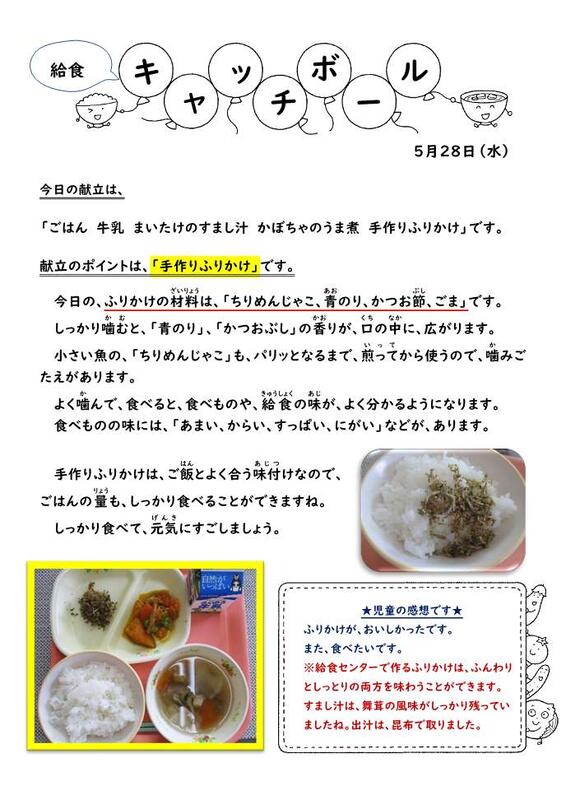 給食
キャッチボール
5月28日(水)
今日の献立は、
「ごはん 牛乳 まいたけのすまし汁 かぼちゃのうま煮 手作りふりかけ」です。
献立のポイントは、「手作りふりかけ」です。
今日の、ふりかけの材料は、「ちりめんじゃこ、青のり、かつお節、ごま」です。
しっかり噛むと、「青のり」、「かつおぶし」の香りが、口の中に、広がります。
小さい魚の、「ちりめんじゃこ」も、パリッとなるまで、煎ってから使うので、噛みご
たえがあります。
よく噛んで、食べると、食べものや、給食の味が、よく分かるようになります。
食べものの味には、「あまい、からい、すっぱい、にがい」などが、あります。
手作りふりかけは、ご飯とよく合う味付けなので、
ごはんの量も、しっかり食べることができますね。
しっかり食べて、元気にすごしましょう。
自然が
いっぱい
★児童の感想です★
ふりかけが、おいしかったです。
また、食べたいです。
※給食センターで作るふりかけは、ふんわり
としっとりの両方を味わうことができます。
すまし汁は、舞茸の風味がしっかり残ってい
ましたね。出汁は、昆布で取りました。